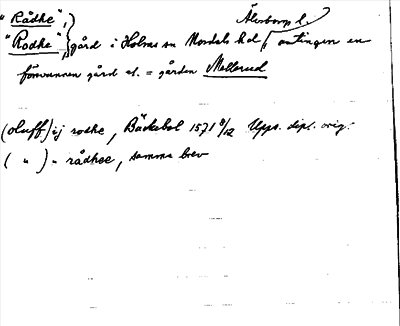 "Rådhe", Älvsborgs l.
"Rodhe", gård i Holms sn Nordals hd, antingen en
försvunnen gård el. = gården Mellerud
(oluff) ij rodhe, Bäckebol 1571 8/12 Upps. dipl. orig.
( " ) - rådhee, samma brev